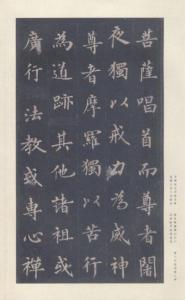 菩薩唱首而尊者闍
夜獨以戒力為威神
尊者摩羅獨以苦行
為道跡其他諸祖或
廣行法教或專心禪